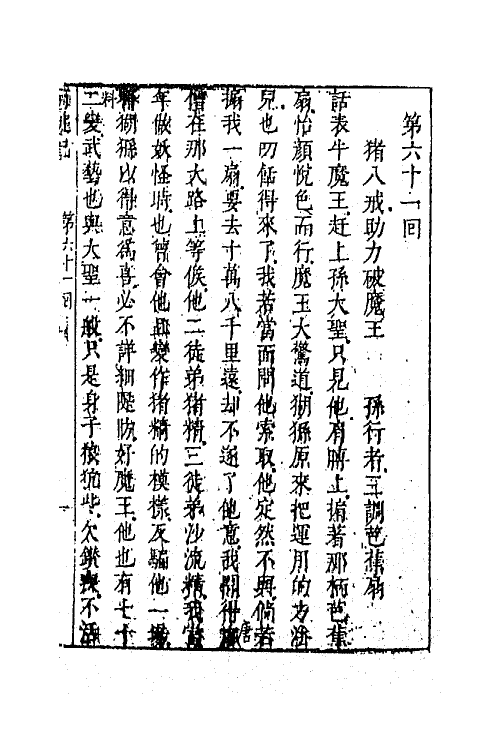 第六十一回
猪八戒助力破魔王 孫行者三調芭蕉扇
話表牛魔王赶上孫大聖只見他肩膊上掮着那柄芭蕉
扇怡顏悅色而行魔王大驚道猢猻原來把運用的方法
兒也叨餂得來了我若當面問他索取他定然不與倘若
搧我一扇要去十萬八千里遠却不遂了他意我聞得唐
僧在那大路上等候他二徒弟猪精三徒弟沙流精我當
年做妖怪時也曾會他且變作猪精的模樣反騙他一場
料猢猻以得意為喜必不詳細隄防好魔王他也有七十
二變武藝也與大聖一般只是身子狼犺些欠鑽疾不活
西遊記 第六十一回 一